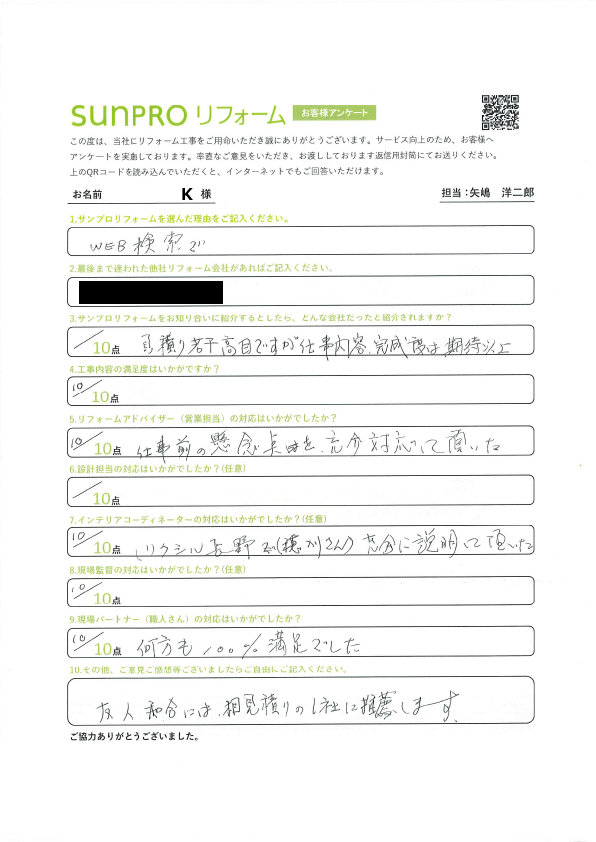 SUNPRO リフォーム お客様アンケート
この度は、当社にリフォーム工事をご用命いただき誠にありがとうございます。サービス向上のため、お客様へ
アンケートを実施しております。率直なご意見をいただき、お渡ししております返信用封筒にてお送りください。
上のQRコードを読み込んでいただくと、インターネットでもご回答いただけます。
お名前 K 様 担当：矢嶋 洋二郎
1.サンプロリフォームを選んだ理由をご記入ください。
WEB検索で
2.最後まで迷われた他社リフォーム会社があればご記入ください。
3.サンプロリフォームをお知り合いに紹介するとしたら、どんな会社だったと紹介されますか？
／10点 見積り若干高目ですが仕事内容、完成度は期待以上
4.工事内容の満足度はいかがですか？
10／10点
5.リフォームアドバイザー（営業担当）の対応はいかがでしたか？
10／10点 仕事前の懸念点を、充分対応して頂いた
6.設計担当の対応はいかがでしたか？(任意)
／10点
7.インテリアコーディネーターの対応はいかがでしたか？(任意)
10／10点 リクシル長野で(さん) 充分に説明して頂いた
8.現場監督の対応はいかがでしたか？(任意)
10／10点
9.現場パートナー（職人さん）の対応はいかがでしたか？
10／10点 何方も100%満足でした
10.その他、ご意見ご感想等ございましたらご自由にご記入ください。
友人 には、相見積りの1社に推薦します。
ご協力ありがとうございました。